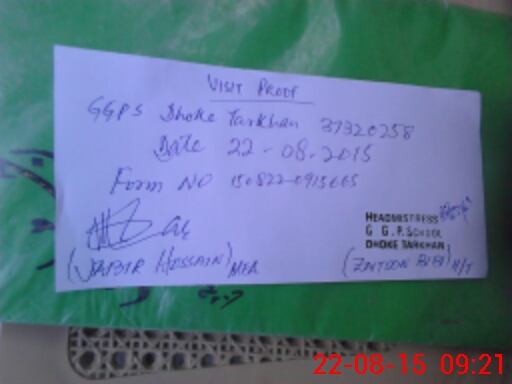 VISIT PROOF
GGPS Dhoke Tarkhan 37320258
Date 22-08-2015
Form NO 150822-0915665
HEADMISTRESS
G G.P. SCHOOL
DHOKE TARKHAN
(HUSSAIN) MEA
(ZAITOON BIBI) H/T
22-08-15 09:21